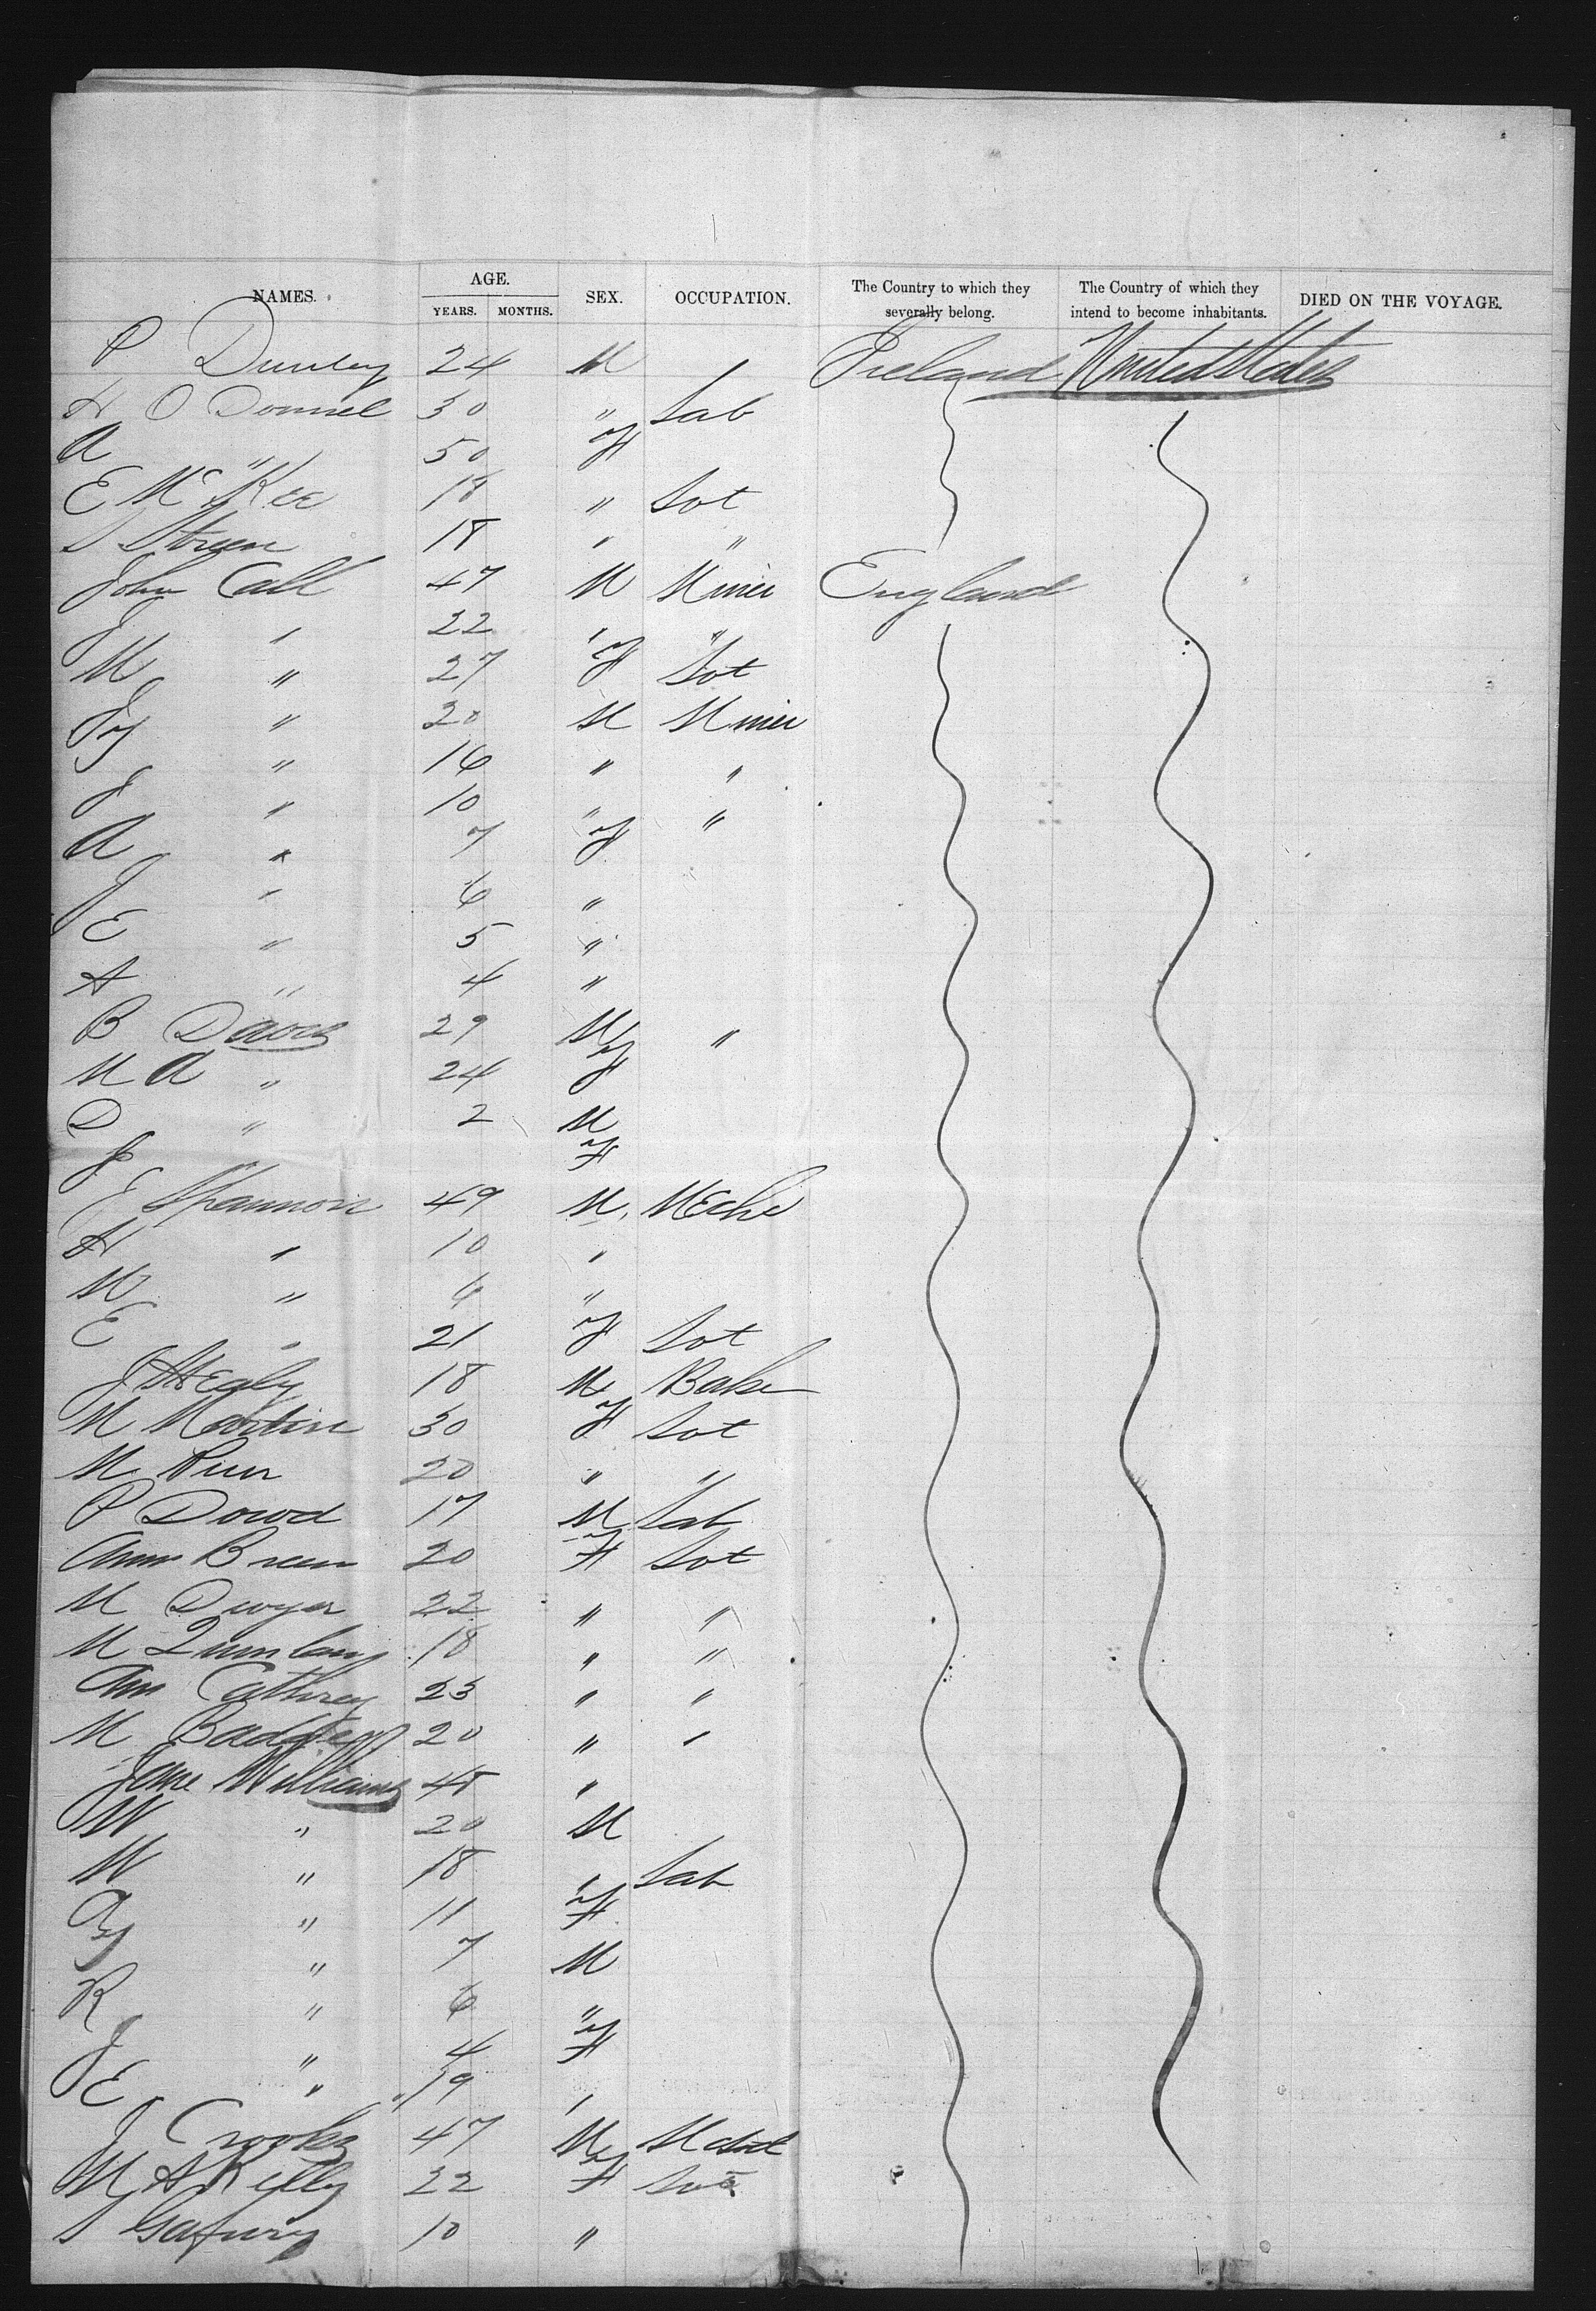 NAMES. AGE. YEARS. MONTHS. SEX. OCCUPATION. The Country to which they severally belong. The Country of which they intend to become inhabitants. DIED ON THE VOYAGE.
P 24 M Ireland United States
H O Donnel 30 " Lab
A " 50 F
E McKee 18 " Sot
S 18 " "
John Call 47 M Miner England
J " 22 " "
M " 27 F Sot
" 20 M Miner
" 16 " "
J " 10 " "
A " 7 F
J " 6 "
E " 5 "
A " 4 "
B Davis 29 M "
M A " 24 F
D " 2 M
J " F
E Shannon 49 M
H " 10 "
M " 6 "
E " 21 F Sot
J Healy 18 M Baker
M Martin 30 F Sot
M 20 " "
P Dowd 17 M Lab
Ann Breen 20 F Sot
M Dwyer 22 " "
M Quinlan 18 " "
Ann Cathrey 23 " "
M Badger 20 " "
Jane Williams 48 "
W " 20 M
W " 18 " Lab
" 11 F
" 7 M
R " 6 "
J " 4 F
E " 19 "
J Crooks 47 M
M A Kelly 22 F Sot
S 10 "